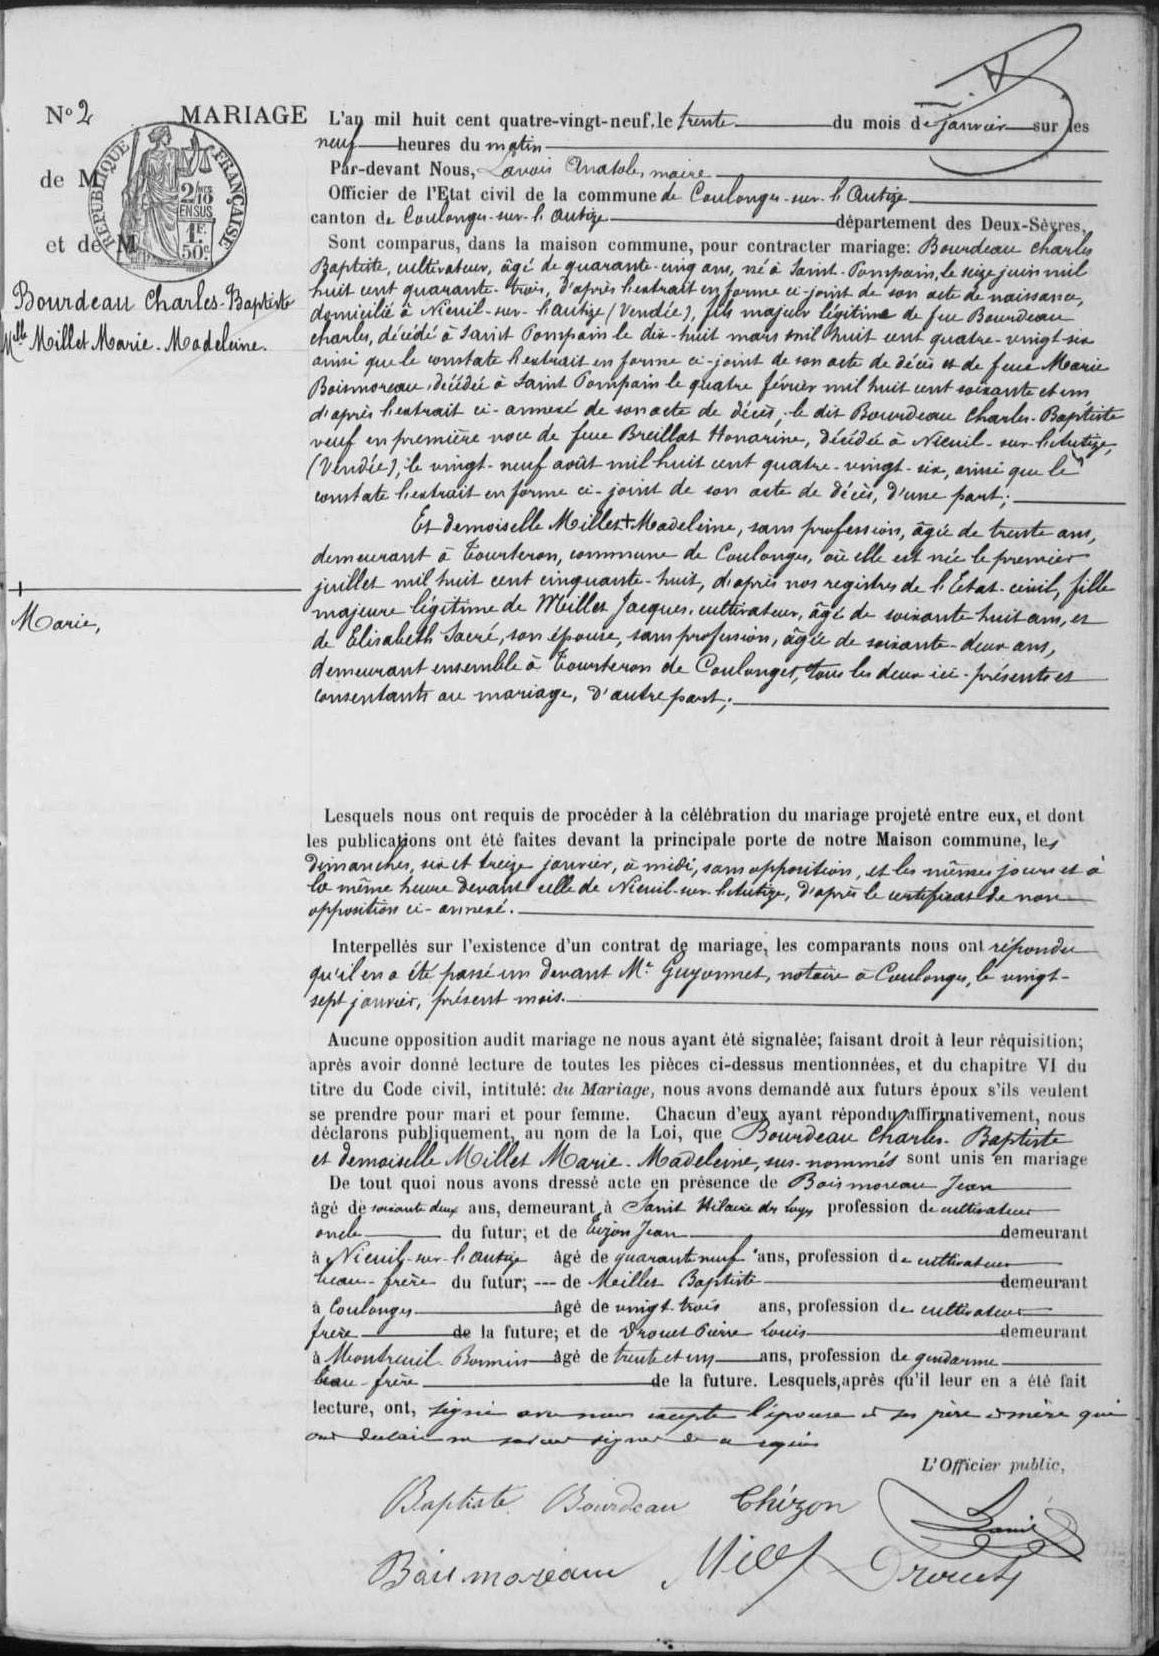 N° 2 MARIAGE
de M
et de M
RÉPUBLIQUE FRANÇAISE
2/10
EN SUS
1F.
50c.
Bourdeau Charles-Baptiste
Mlle Millet Marie-Madeleine.
L'an mil huit cent quatre-vingt-neuf, le trente du mois de janvier sur les
neuf heures du matin
Par-devant Nous, Anatole, maire
Officier de l'Etat civil de la commune de Coulonges-sur-l'Autize
canton de Coulonges-sur-l'Autize département des Deux-Sèvres.
Sont comparus, dans la maison commune, pour contracter mariage: Bourdeau Charles
Baptiste, cultivateur, âgé de quarante-cinq ans, né à Saint-Pompain, le seize juin mil
huit cent quarante-trois, d'après l'extrait en forme ci-joint de son acte de naissance,
domicilié à Nieuil-sur-l'Autize (Vendée), fils majeur légitime de feu Bourdeau
Charles, décédé à Saint Pompain le dix-huit mars mil huit cent quatre-vingt-six
ainsi que le constate l'extrait en forme ci-joint de son acte de décès et de feue Marie
Boismoreau, décédée à Saint Pompain le quatre février mil huit cent soixante et un
d'après l'extrait ci-annexé de son acte de décès, le dit Bourdeau Charles-Baptiste
veuf en première noce de feue Breillat Honorine, décédée à Nieuil-sur-l'Autize,
(Vendée), le vingt-neuf août mil huit cent quatre-vingt-six, ainsi que le
constate l'extrait en forme ci-joint de son acte de décès, d'une part;
Et demoiselle Millet + Madeleine, sans profession, âgée de trente ans,
demeurant à Tourteron, commune de Coulonges, où elle est née le premier
juillet mil huit cent cinquante-huit, d'après nos registres de l'Etat-civil, fille
majeure légitime de Millet Jacques, cultivateur, âgé de soixante huit ans, et
+ Marie,
de Elisabeth Sacré, son épouse, sans profession, âgée de soixante-deux ans,
demeurant ensemble à Tourteron de Coulonges, tous les deux ici-présents et
consentants au mariage, d'autre part;
Lesquels nous ont requis de procéder à la célébration du mariage projeté entre eux, et dont
les publications ont été faites devant la principale porte de notre Maison commune, les
dimanches, six et treize janvier, à midi, sans opposition, et les mêmes jours et à
la même heure devant celle de Nieuil-sur-l'Autize, d'après le certificat de non
opposition ci-annexé.
Interpellés sur l'existence d'un contrat de mariage, les comparants nous ont répondu
qu'il en a été passé un devant Me Guyonnet, notaire à Coulonges, le vingt-
sept janvier, présent mois.
Aucune opposition audit mariage ne nous ayant été signalée; faisant droit à leur réquisition;
après avoir donné lecture de toutes les pièces ci-dessus mentionnées, et du chapitre VI du
titre du Code civil, intitulé: du Mariage, nous avons demandé aux futurs époux s'ils veulent
se prendre pour mari et pour femme. Chacun d'eux ayant répondu affirmativement, nous
déclarons publiquement, au nom de la Loi, que Bourdeau Charles-Baptiste
et demoiselle Millet Marie-Madeleine, sus-nommés sont unis en mariage
De tout quoi nous avons dressé acte en présence de Boismoreau Jean
âgé de soixante deux ans, demeurant à Saint Hilaire des Loges profession de cultivateur
oncle du futur; et de Jean demeurant
à Nieuil-sur-l'Autize âgé de quarante neuf ans, profession de cultivateur
beau-frère du futur; --- de Millet Baptiste demeurant
à Coulonges âgé de vingt-trois ans, profession de cultivateur
frère de la future; et de Drouet Pierre Louis demeurant
à Montreuil-Bonnin âgé de trente et un ans, profession de gendarme
beau-frère de la future. Lesquels, après qu'il leur en a été fait
lecture, ont, signé avec nous excepté l'épouse et ses père et mère qui
ont déclaré ne savoir signer de ce requis
L'Officier public,
Baptiste Bourdeau Chézon
Boismoreau Millet Drouet